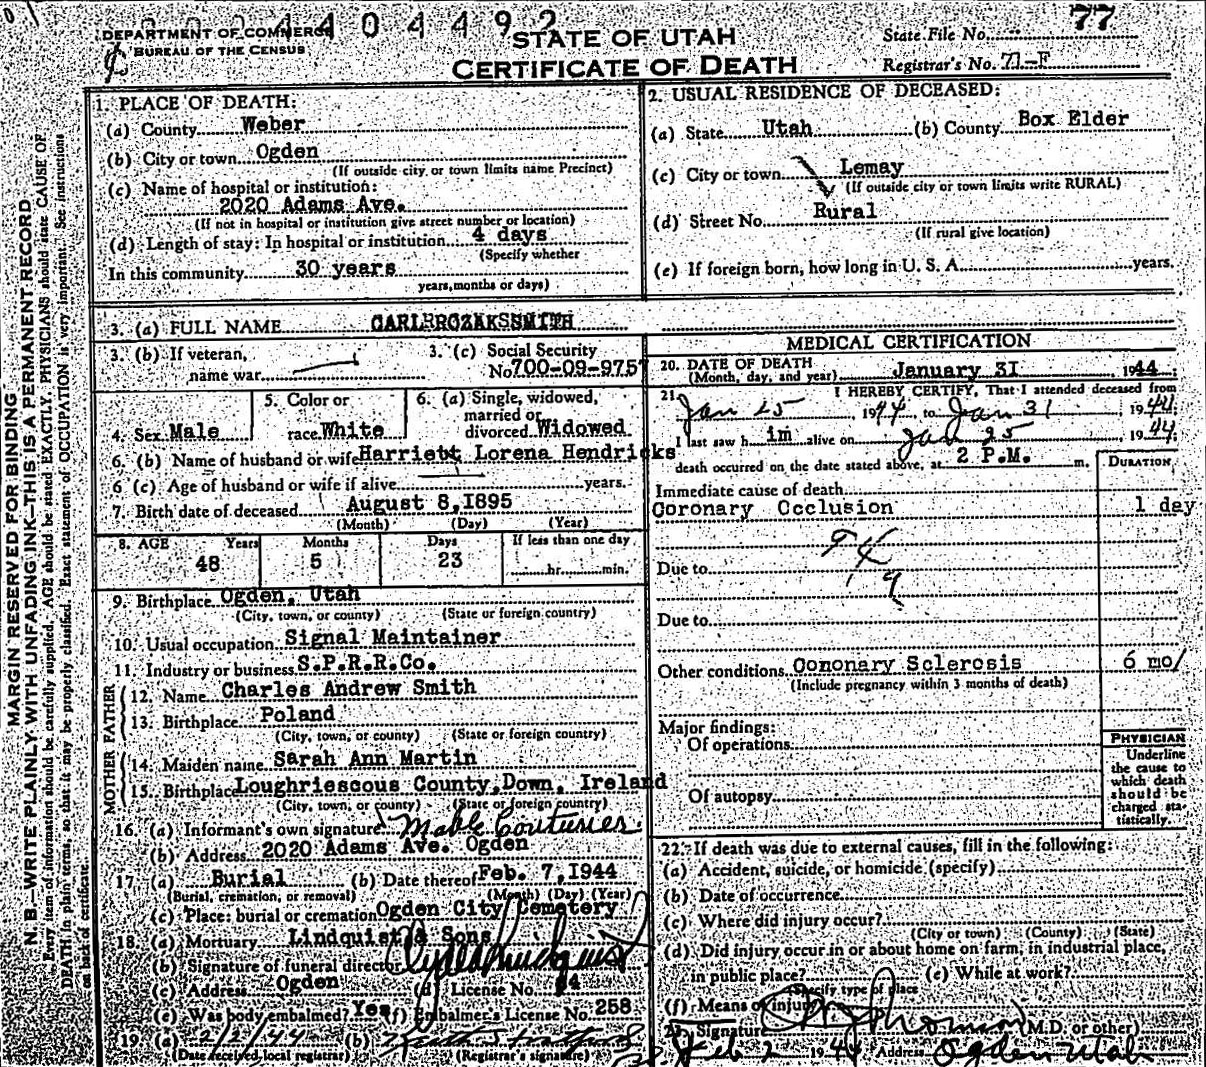 0004404492
DEPARTMENT OF COMMERCE
BUREAU OF THE CENSUS
STATE OF UTAH
CERTIFICATE OF DEATH
State File No. 77
Registrar's No. 71-F
MARGIN RESERVED FOR BINDING
N. B.—WRITE PLAINLY WITH UNFADING INK—THIS IS A PERMANENT RECORD
Every item of information should be carefully supplied. AGE should be stated EXACTLY. PHYSICIANS should state CAUSE OF
DEATH in plain terms, so that it may be properly classified. Exact statement of OCCUPATION is very important. See instructions
on back of certificate.
1. PLACE OF DEATH:
(a) County Weber
(b) City or town Ogden
(If outside city or town limits name Precinct)
(c) Name of hospital or institution:
2020 Adams Ave.
(If not in hospital or institution give street number or location)
(d) Length of stay: In hospital or institution 4 days
(Specify whether
In this community 30 years
years, months or days)
2. USUAL RESIDENCE OF DECEASED:
(a) State Utah (b) County Box Elder
(c) City or town Lemay
(If outside city or town limits write RURAL)
(d) Street No. Rural
(If rural give location)
(e) If foreign born, how long in U. S. A. years.
3. (a) FULL NAME
3. (b) If veteran,
name war
3. (c) Social Security
No. 700-09-9757
4. Sex Male
5. Color or
race White
6. (a) Single, widowed,
married or
divorced Widowed
6. (b) Name of husband or wife Harriett Lorena Hendricks
6 (c) Age of husband or wife if alive years.
7. Birth date of deceased August 8, 1895
(Month) (Day) (Year)
8. AGE Years Months Days If less than one day
48 5 23 hr. min.
9. Birthplace Ogden, Utah
(City, town, or county) (State or foreign country)
10. Usual occupation Signal Maintainer
11. Industry or business S.P.R.R.Co.
FATHER
12. Name Charles Andrew Smith
13. Birthplace Poland
(City, town, or county) (State or foreign country)
MOTHER
14. Maiden name Sarah Ann Martin
15. Birthplace Loughriescous County, Down, Ireland
(City, town, or county) (State or foreign country)
16. (a) Informant's own signature Mable Couturier
(b) Address 2020 Adams Ave. Ogden
17. (a) Burial (b) Date thereof Feb. 7, 1944
(Burial, cremation, or removal) (Month) (Day) (Year)
(c) Place: burial or cremation Ogden City Cemetery
18. (a) Mortuary Lindquist & Sons
(b) Signature of funeral director
(c) Address Ogden (d) License No. 84
(e) Was body embalmed? Yes (f) Embalmer's License No. 258
19. (a) 2/2/44 (b)
(Date received local registrar) (Registrar's signature)
MEDICAL CERTIFICATION
20. DATE OF DEATH
(Month, day, and year) January 31 1944
21. I HEREBY CERTIFY, That I attended deceased from
Jan 25 1944 to Jan 31 1944;
I last saw him alive on Jan 25 1944;
death occurred on the date stated above, at 2 P.M. m.
DURATION
Immediate cause of death
Coronary Occlusion 1 day
Due to
Due to
Other conditions Coronary Sclerosis 6 mo/
(Include pregnancy within 3 months of death)
Major findings:
Of operations
Of autopsy
PHYSICIAN
Underline
the cause to
which death
should be
charged sta-
tistically.
22. If death was due to external causes, fill in the following:
(a) Accident, suicide, or homicide (specify)
(b) Date of occurrence
(c) Where did injury occur?
(City or town) (County) (State)
(d) Did injury occur in or about home on farm, in industrial place,
in public place? (e) While at work?
(Specify type of place
(f) Means of injury
23. Signature (M.D. or other)
Feb 2 1944 Address Ogden Utah